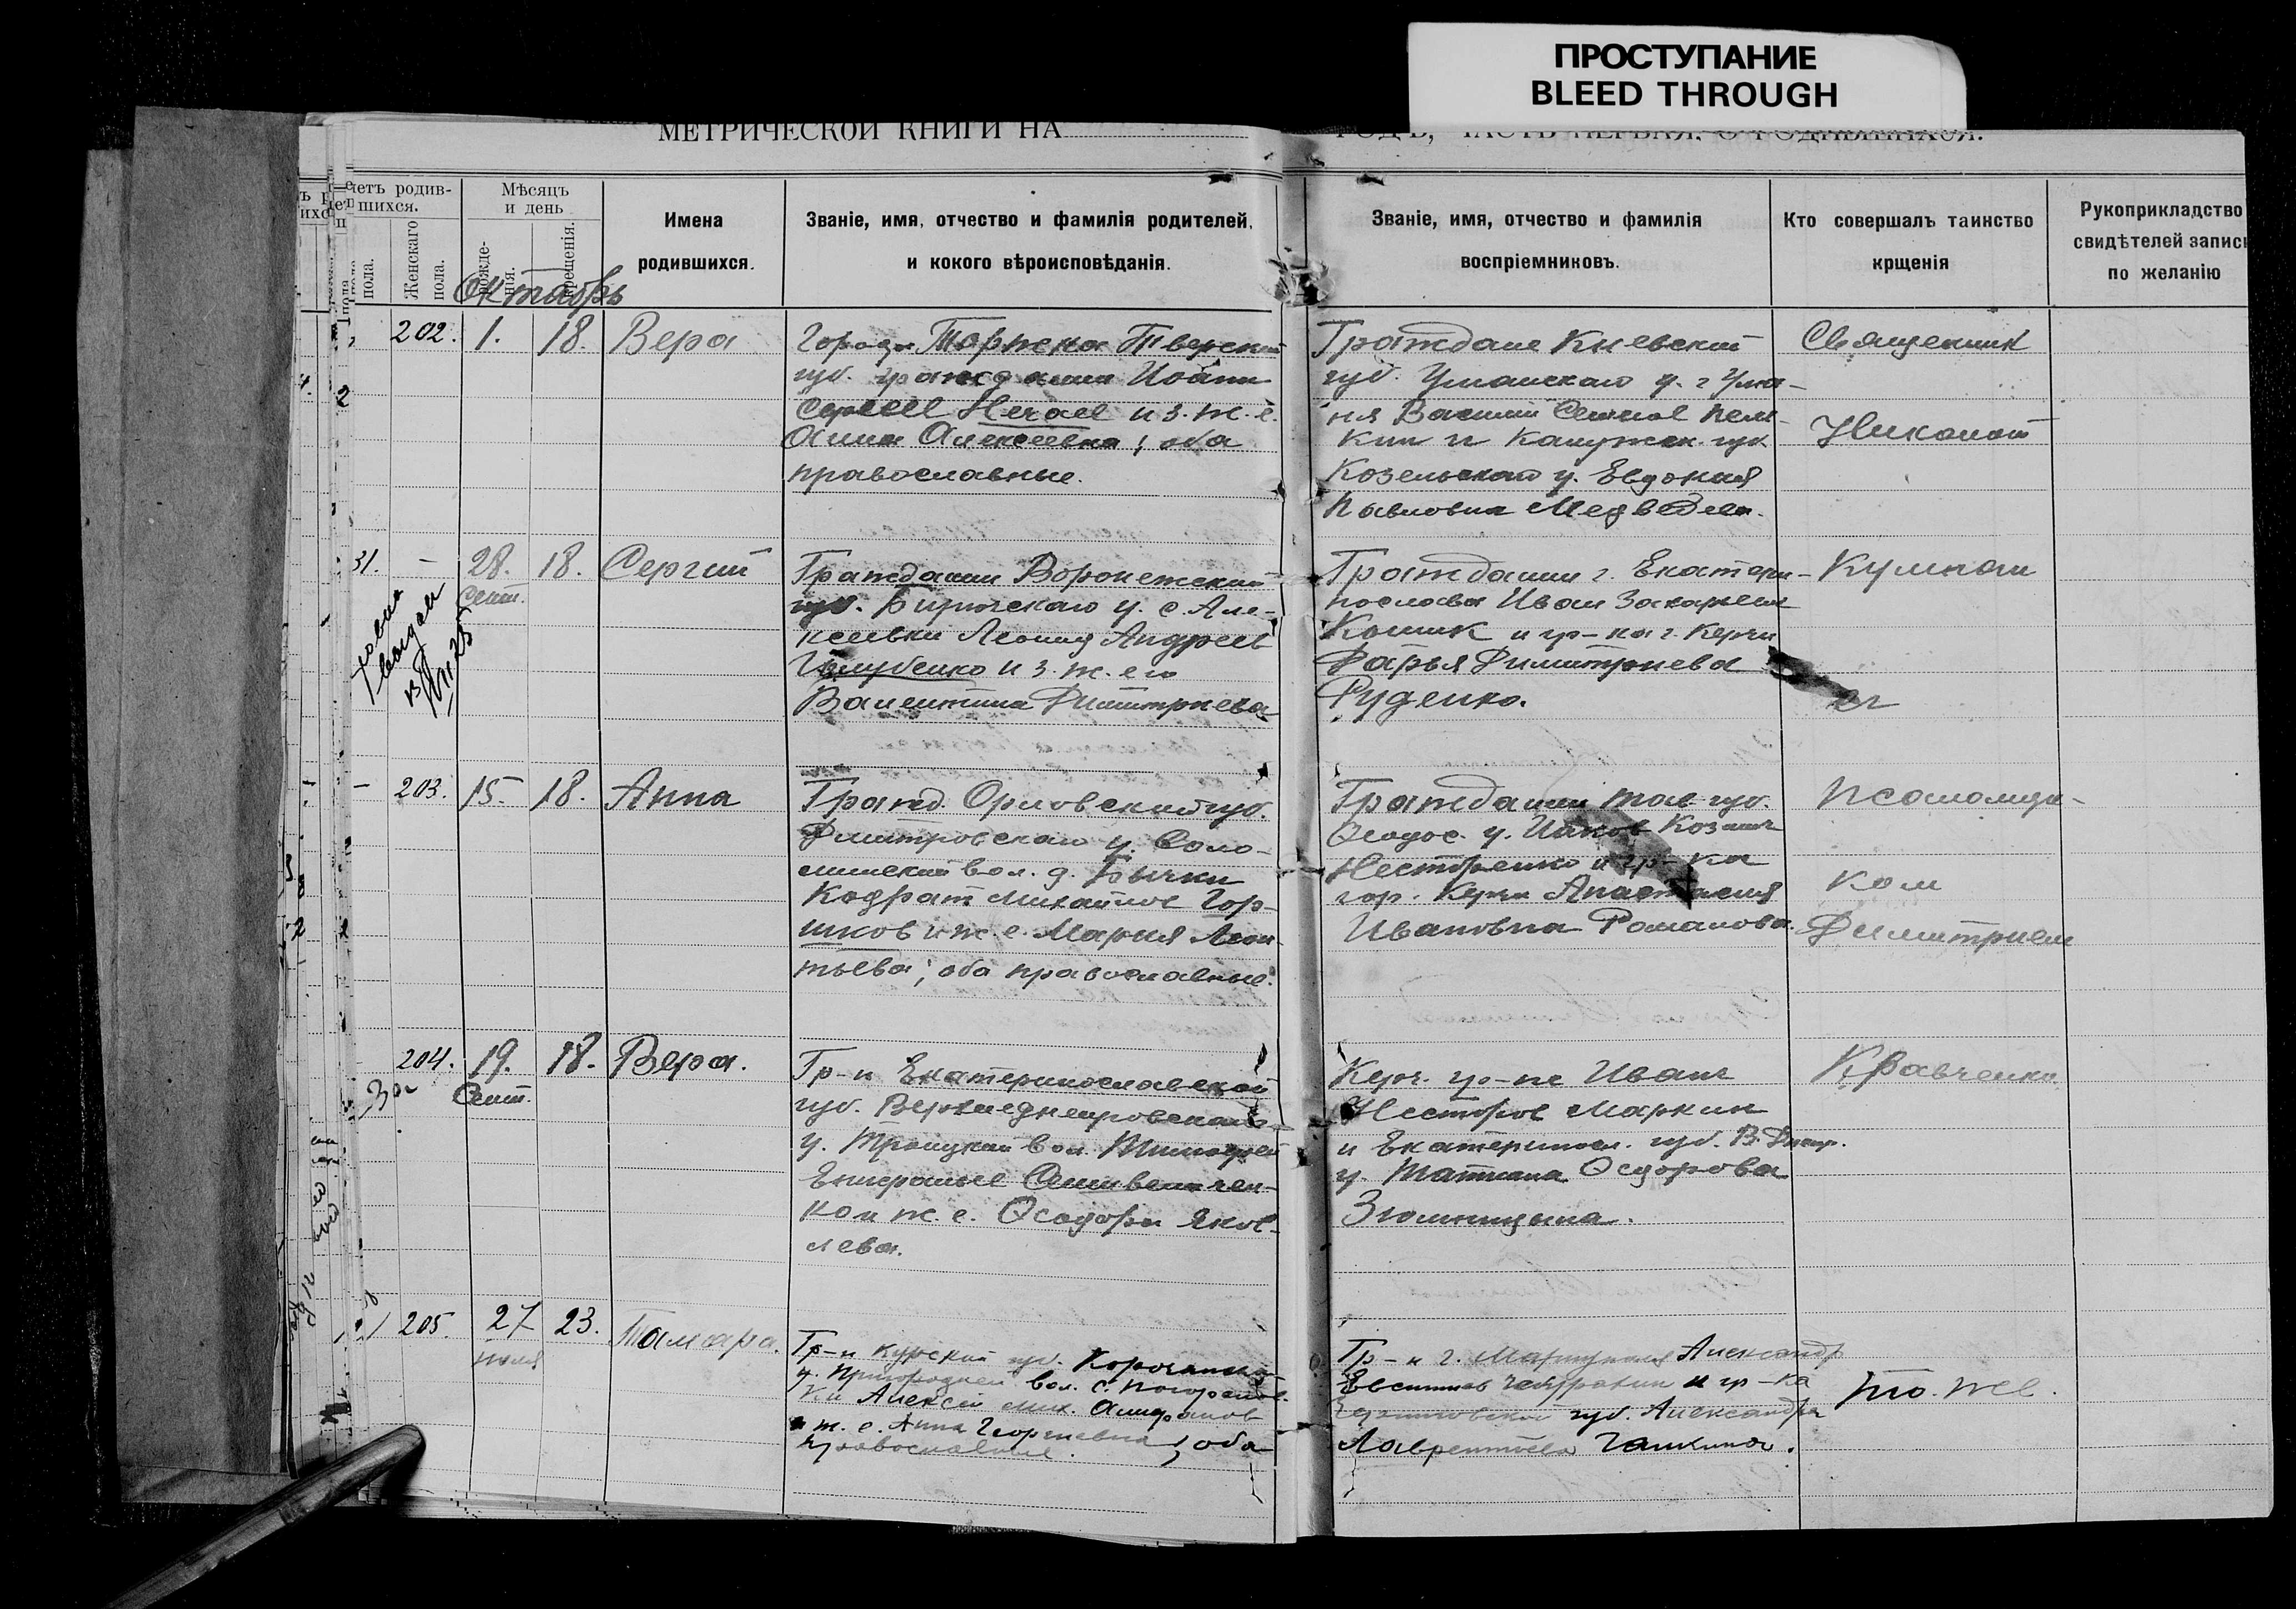 ПРОСТУПАНИЕ
BLEED THROUGH
МЕТРИЧЕСКОЙ КНИГИ НА
ГОДЪ, ЧАСТЬ ПЕРВАЯ, О РОДИВШИХСЯ.
четъ родив-
шихся.
пола.
Женскаго
пола.
Мѣсяцъ
и день
рожде-
нія.
крещенія.
Имена
родившихся.
Званіе, имя, отчество и фамилія родителей,
и кокого вѣроисповѣданія.
Званіе, имя, отчество и фамилія
воспріемниковъ.
Кто совершалъ таинство
крщенія
Рукоприкладство
свидѣтелей записи
по желанію
Октябрь
202. 1. 18. Вера
Города Торжка Тверской
губ. гражданин Иоанн
и з. ж. е.
Анна Алексеевна; оба
православные.
Граждане Киевской
губ. Уманскаго у. г. Ума-
ня Василий
и Калужск. губ.
Козельскаго у. Евдокия
Павловна Медведева.
Священник
Николай
31. - 28. 18. Сергий
Сент.
Гражданин Воронежской
губ. Бирючскаго у. с. Але-
ксеевки Леонид Андреев
Голубенко и з. ж. его
Валентина Димитриева
Гражданин г. Екатери-
нослава Иван Захарьев
Кошик и гр-ка г. Керчи
Дарья Димитриева
Руденко.
- 203. 15. 18. Анна
Гражд. Орловской губ.
Дмитровскаго у. Соло-
минской вол. д. Бычки
Кодрат Михайлов Гор-
шков и ж. е. Мария Леон-
тьева; оба православные.
Гражданин Тав. губ.
Феодос. у. Иаков
Нестеренко и гр-ка
гор. Керчи Анастасия
Ивановна Романова.
с
Псаломщи-
ком
Димитрием
204. 19. 18. Вера.
Сент.
Гр-н Екатеринославской
губ. Верхнеднепровскаго
у. Троицкой вол. Тимофей
ко и ж. е. Феодора Яков-
лева.
Керч. гр-не Иван
Несторов Маркин
и Екатериносл. губ. В. Днепр.
у. Татиана Феодорова
Кравченко
205. 27 23. Тамара.
июля
Гр-н Курской губ. Корочанск.
у. Пригородней вол. с. Погорелов-
ки Алексей Мих.
и ж. е. Анна Георгиевна; оба
православные.
Гр-н г. Мариуполя Александр
и гр-ка
губ. Александра
Лаврентиева Галкина.
То-же.